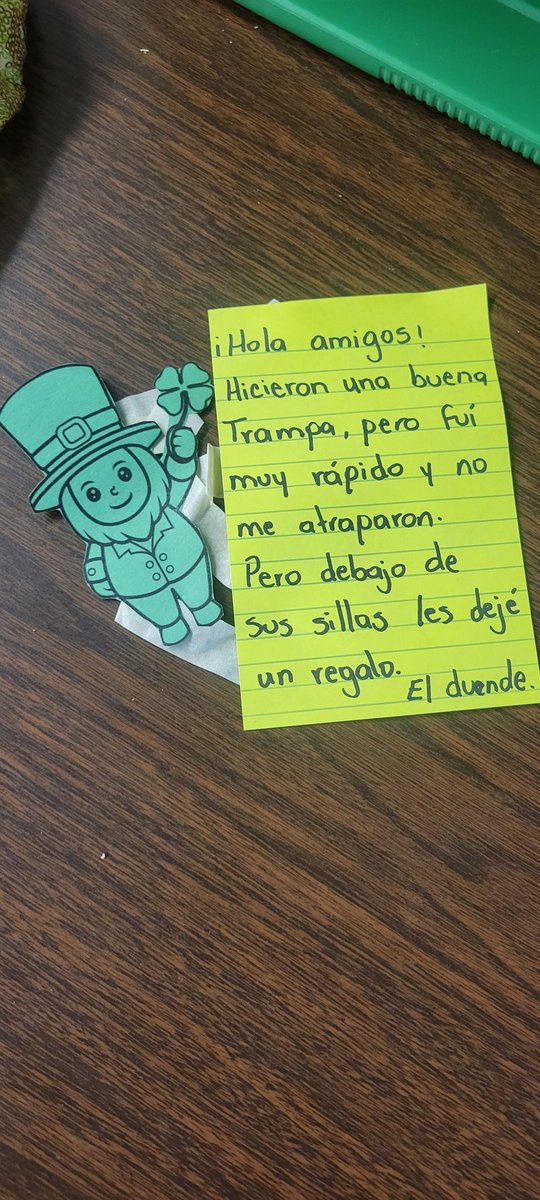 ¡Hola amigos!
Hicieron una buena
Trampa, pero fuí
muy rápido y no
me atraparon.
Pero debajo de
sus sillas les dejé
un regalo.
El duende.